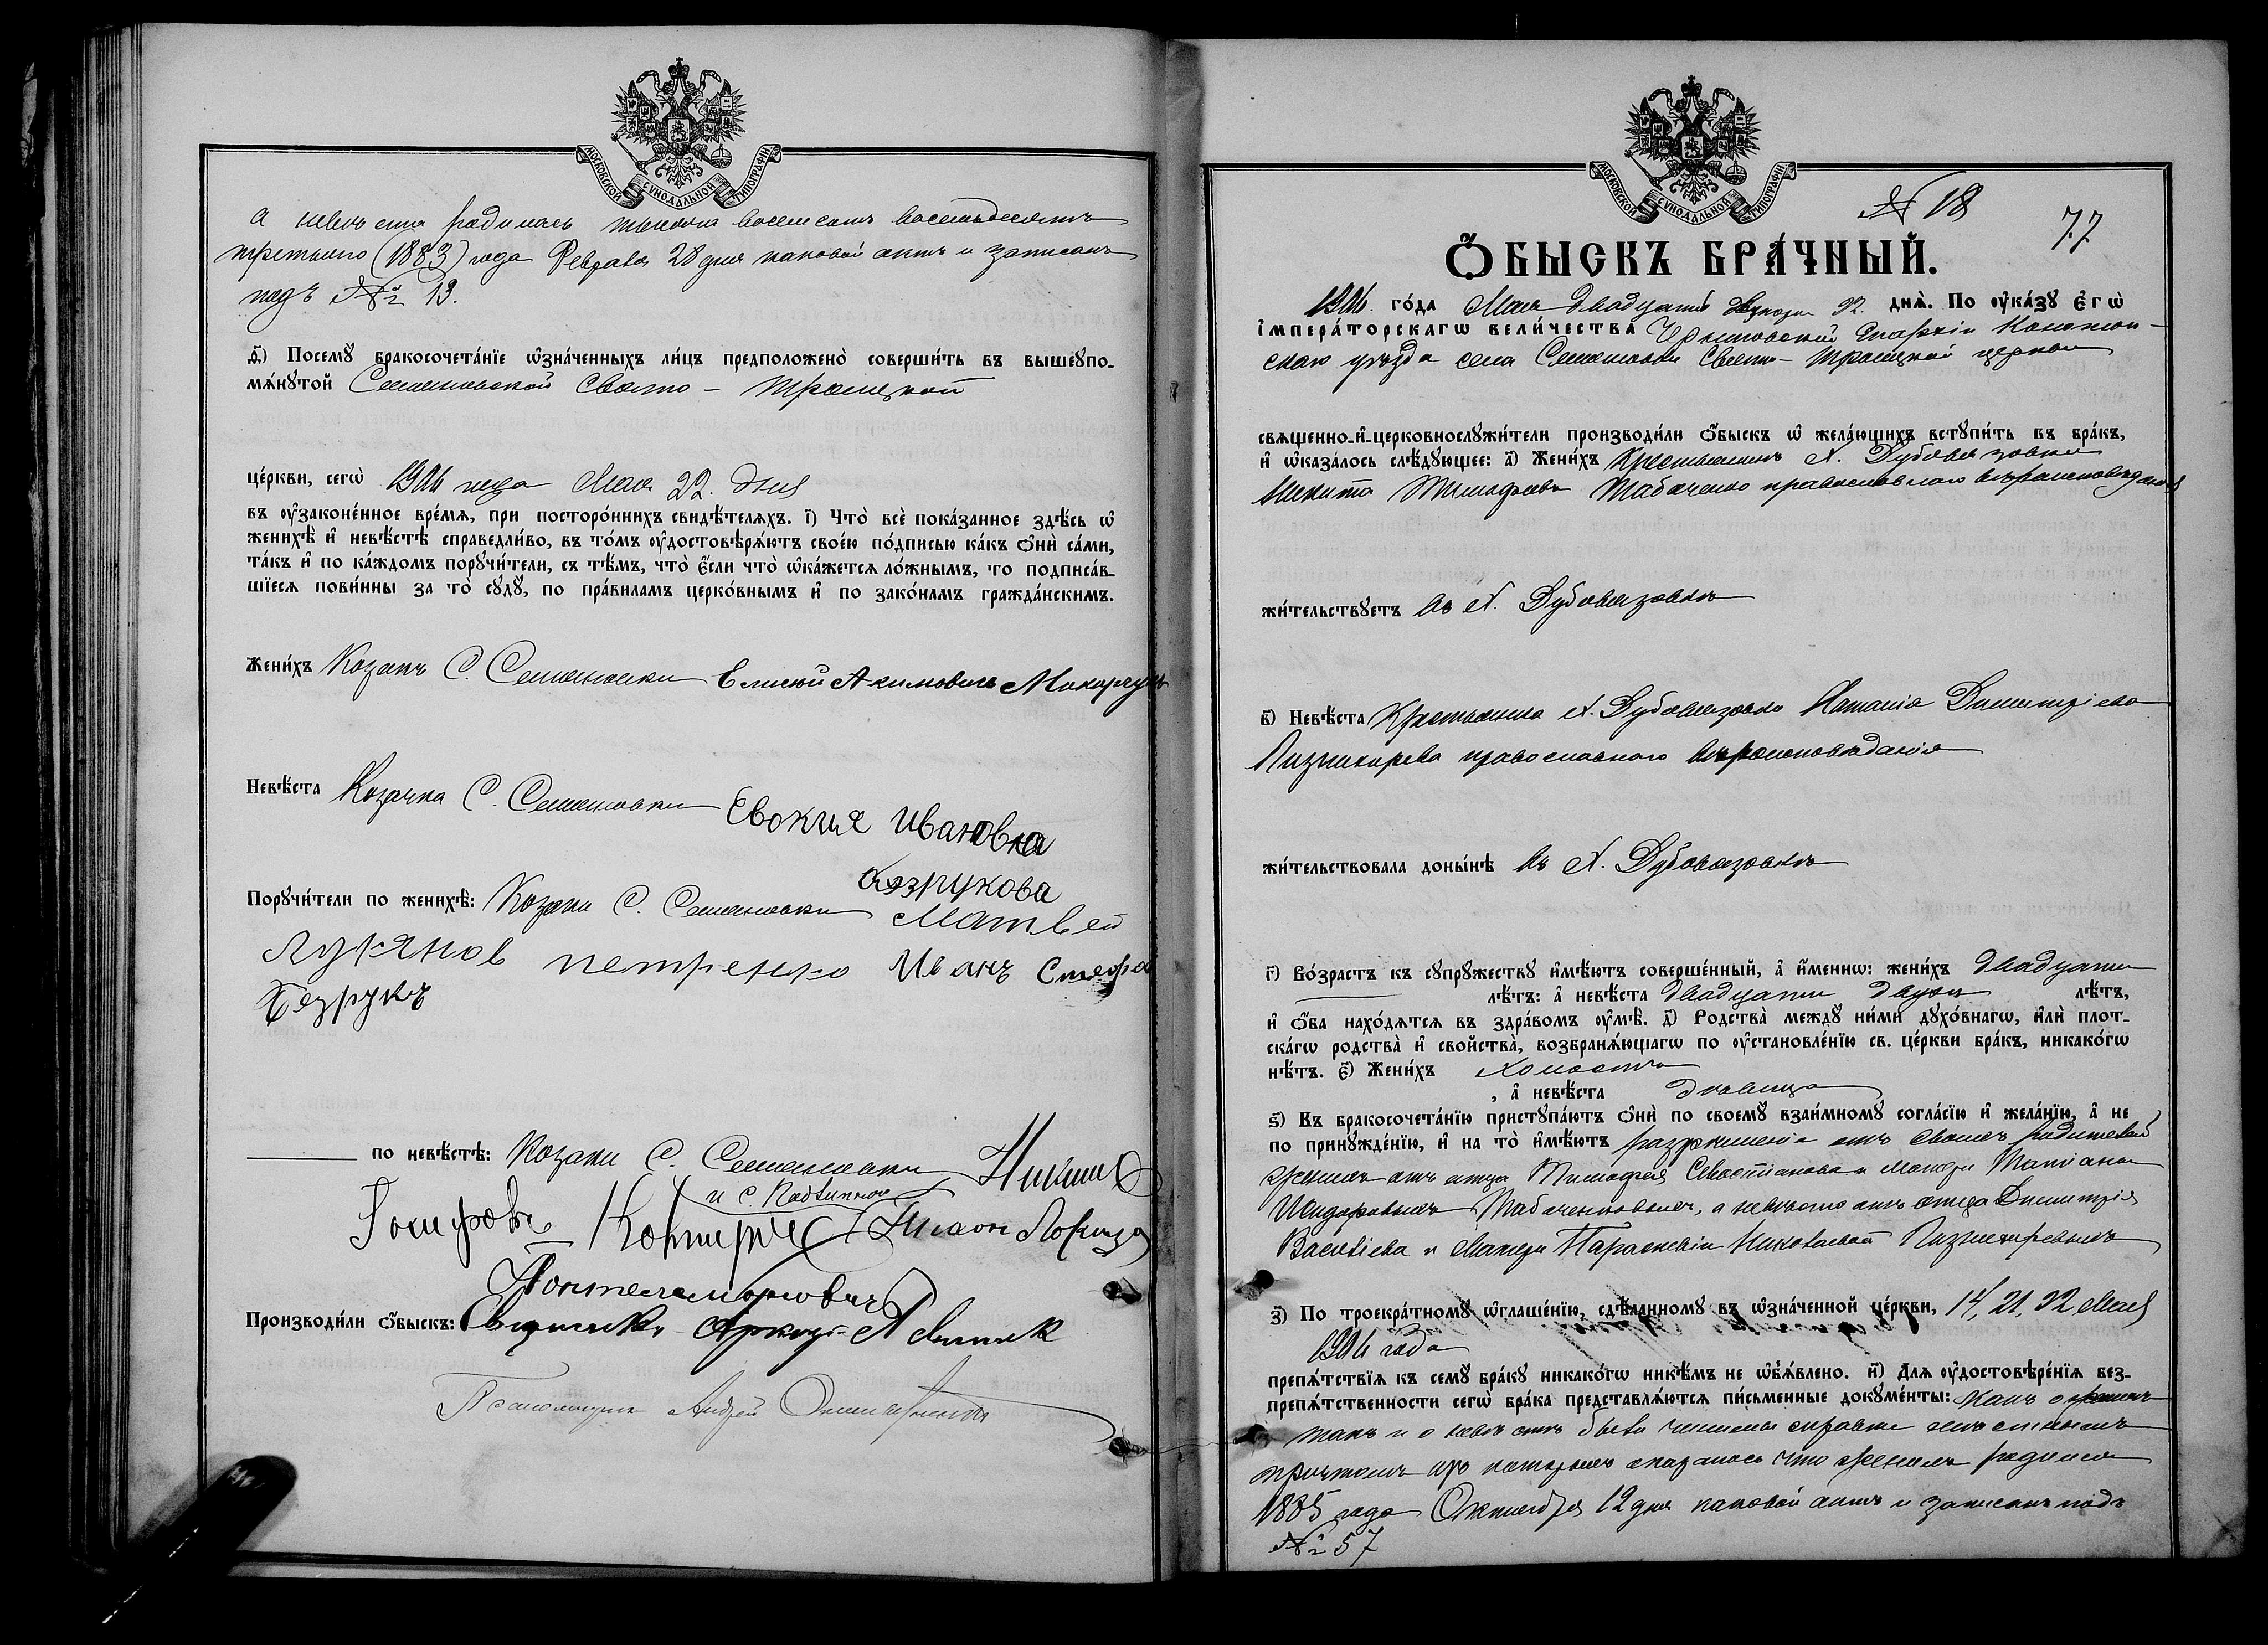 МОСКОВСКОЙ СѴНОДАЛЬНОЙ ТИПОГРАФІИ
а невѣста родилась тысяча восемсотъ восемьдесятъ
третьяго (1883) года Февраля 28 дня каковой актъ и записанъ
подъ № 13.
д҃і) Посемꙋ̀ бракосочета́нїе ѡ҆зна́ченныхъ ли́цъ предположено̀ соверши́ть въ вышеꙋпо-
мѧ́нꙋтой Семеновской Свято – Троицкой
це́ркви, сегѡ̀ 1906 года Мая 22. дня
въ ᲂу҆законе́нное вре́мѧ, при посторо́ннихъ свидѣ́телѧхъ. і҃) Что̀ всѐ пока́занное здѣ́сь ѡ҆
женихѣ̀ и҆ невѣ́стѣ справедли́во, въ то́мъ ᲂу҆достовѣрѧ́ютъ свое́ю по́дписью ка́къ ѻ҆нѝ са́ми,
та́къ и҆ по ка́ждомъ порꙋчи́тели, съ тѣ́мъ, что̀ є҆́сли что̀ ѡ҆ка́жетсѧ ло́жнымъ, то подписа́в-
шїесѧ пови́нны за то̀ сꙋдꙋ̀, по пра́виламъ церко́внымъ и҆ по зако́намъ гражда́нскимъ.
Жени́хъ Козакъ С. Семеновки Елисей Акимовичъ
Невѣ́ста Козачка С. Семеновки Евокия Ивановна
Безрукова
Порꙋчи́тели по женихѣ̀: Козаки С. Семеновки Матвей
Лукянов петренко Иванъ
Безрукъ
по невѣ́стѣ: Козаки С. Семеновки
и с.
Производи́ли ѻ҆́быскъ: Священникъ
Псаломщикъ Андрей
МОСКОВСКОЙ СѴНОДАЛЬНОЙ ТИПОГРАФІИ
№ 18
77
Ѻ҆́БЫСКЪ БРА́ЧНЫЙ.
1906. го́да Мая двадцать 22. днѧ̀. По ᲂу҆ка́зꙋ є҆гѡ̀
і҆мпера́торскагѡ вели́чества Черниговской Епархіи Конотоп-
скаго уѣзда села Семеновки Свято – Троицкой церкви
свѧщенно-и҆-церковнослꙋжи́тели производи́ли ѻ҆́быскъ ѡ҆ жела́ющихъ встꙋпи́ть въ бра́къ,
и҆ ѡ҆каза́лось слѣ́дꙋющее: а҃) Жени́хъ Крестьянинъ х. Дубовязовки
Никита Тимофеевъ Табаченко православного вѣроисповѣданія
жи́тельствꙋетъ въ х. Дубовязовкѣ
в҃) Невѣ́ста Крестьянка х. Дубовязовки Наталія Димитріева
православного вѣроисповѣданія
жи́тельствовала доны́нѣ въ х. Дубовязовкѣ
г҃) Во́зрастъ къ сꙋпрꙋ́жествꙋ и҆мѣ́ютъ соверше́нный, а҆ и҆́меннѡ: жени́хъ двадцати
лѣ́тъ: а҆ невѣ́ста двадцати двухъ лѣ́тъ,
и҆ ѻ҆́ба нахо́дѧтсѧ въ здра́вомъ ᲂу҆мѣ̀. д҃) Родства̀ междꙋ̀ ни́ми дꙋхо́внагѡ, и҆лѝ плот-
ска́гѡ родства̀ и҆ свойства̀, возбранѧ́ющагѡ по ᲂу҆становле́нїю св. це́ркви бра́къ, никако́гѡ
нѣ́тъ. є҃) Жени́хъ холостъ
, а҆ невѣ́ста дѣвица
ѕ҃) Къ бракосочета́нїю пристꙋпа́ютъ ѻ҆нѝ по своемꙋ̀ взаи́мномꙋ согла́сїю и҆ жела́нїю, а҆ не
по принꙋжде́нїю, и҆ на то̀ и҆мѣ́ютъ разрѣшеніе отъ своихъ родителей
женихъ отъ отца Тимофея Севастіанова и матери Татіаны
Исидоровыхъ Табаченковыхъ, а невѣста отъ отца Димитрія
Василіева и матери Параскевіи Николаевой
з҃) По троекра́тномꙋ ѡ҆глаше́нїю, сдѣ́ланномꙋ въ ѡ҆зна́ченной це́ркви, 14, 21, 22 Мая
1906 года
препѧ́тствїѧ къ семꙋ̀ бра́кꙋ никако́гѡ никѣ́мъ не ѡ҆б̾ѧ́влено. и҃) Длѧ ᲂу҆достовѣре́нїѧ без-
препѧ́тственности сегѡ̀ бра́ка представлѧ́ютсѧ пи́сьменные докꙋме́нты: какъ о женихѣ
такъ и о невѣстѣ были чинимы справки мѣстнымъ
причтомъ изъ которыхъ оказалось что женихъ родился
1885 года Октября 12 дня каковой актъ и записанъ подъ
№ 57